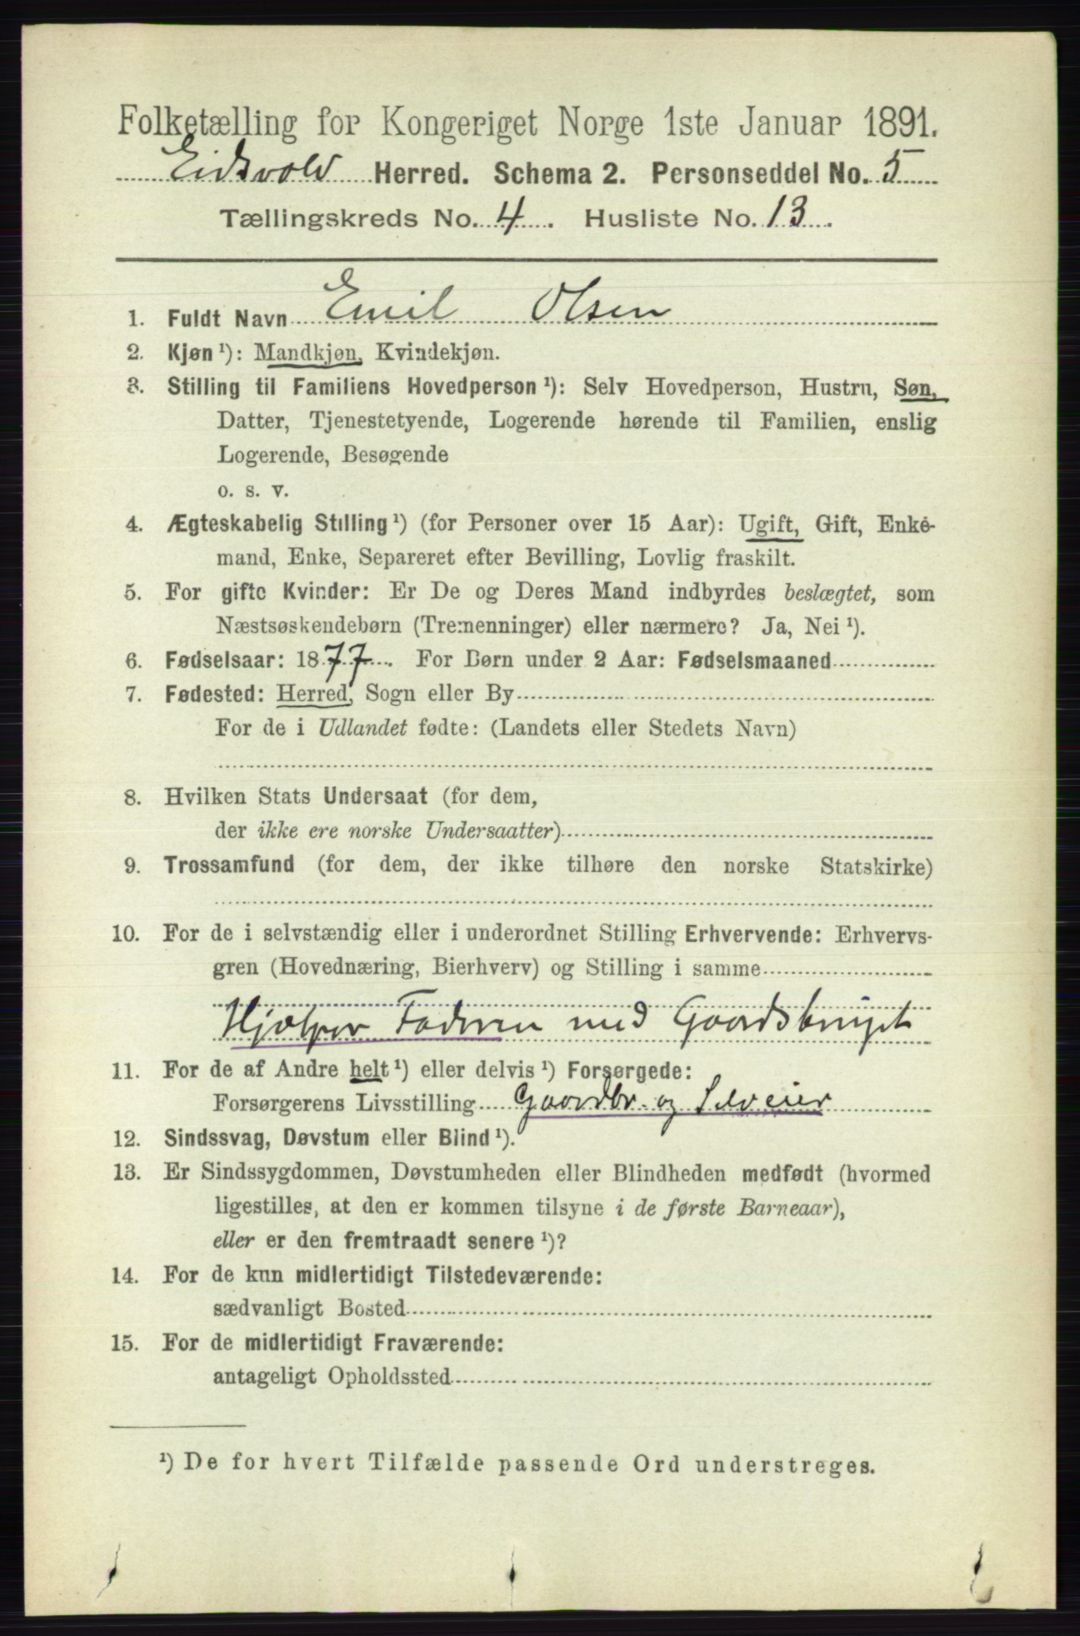 Folketælling for Kongeriget Norge 1ste Januar 1891.
Eidsvold Herred. Schema 2. Personseddel No. 5
Tællingskreds No. 4. Husliste No. 13.
1. Fuldt Navn Emil Olsen
2. Kjøn ¹): Mandkjøn, Kvindekjøn.
3. Stilling til Familiens Hovedperson ¹): Selv Hovedperson, Hustru, Søn,
Datter, Tjenestetyende, Logerende hørende til Familien, enslig
Logerende, Besøgende
o. s. v.
4. Ægteskabelig Stilling ¹) (for Personer over 15 Aar): Ugift, Gift, Enke-
mand, Enke, Separeret efter Bevilling, Lovlig fraskilt.
5. For gifte Kvinder: Er De og Deres Mand indbyrdes beslægtet, som
Næstsøskendebørn (Tremenninger) eller nærmere? Ja, Nei ¹).
6. Fødselsaar: 1877. For Børn under 2 Aar: Fødselsmaaned
7. Fødested: Herred, Sogn eller By
For de i Udlandet fødte: (Landets eller Stedets Navn)
8. Hvilken Stats Undersaat (for dem,
der ikke ere norske Undersaatter)
9. Trossamfund (for dem, der ikke tilhøre den norske Statskirke)
10. For de i selvstændig eller i underordnet Stilling Erhvervende: Erhvervs-
gren (Hovednæring, Bierhverv) og Stilling i samme
Hjælper Faderen med Gaardsbruget
11. For de af Andre helt ¹) eller delvis ¹) Forsørgede:
Forsørgerens Livsstilling Gaardbr. og Selveier
12. Sindssvag, Døvstum eller Blind ¹).
13. Er Sindssygdommen, Døvstumheden eller Blindheden medfødt (hvormed
ligestilles, at den er kommen tilsyne i de første Barneaar),
eller er den fremtraadt senere ¹)?
14. For de kun midlertidigt Tilstedeværende:
sædvanligt Bosted
15. For de midlertidigt Fraværende:
antageligt Opholdssted
¹) De for hvert Tilfælde passende Ord understreges.